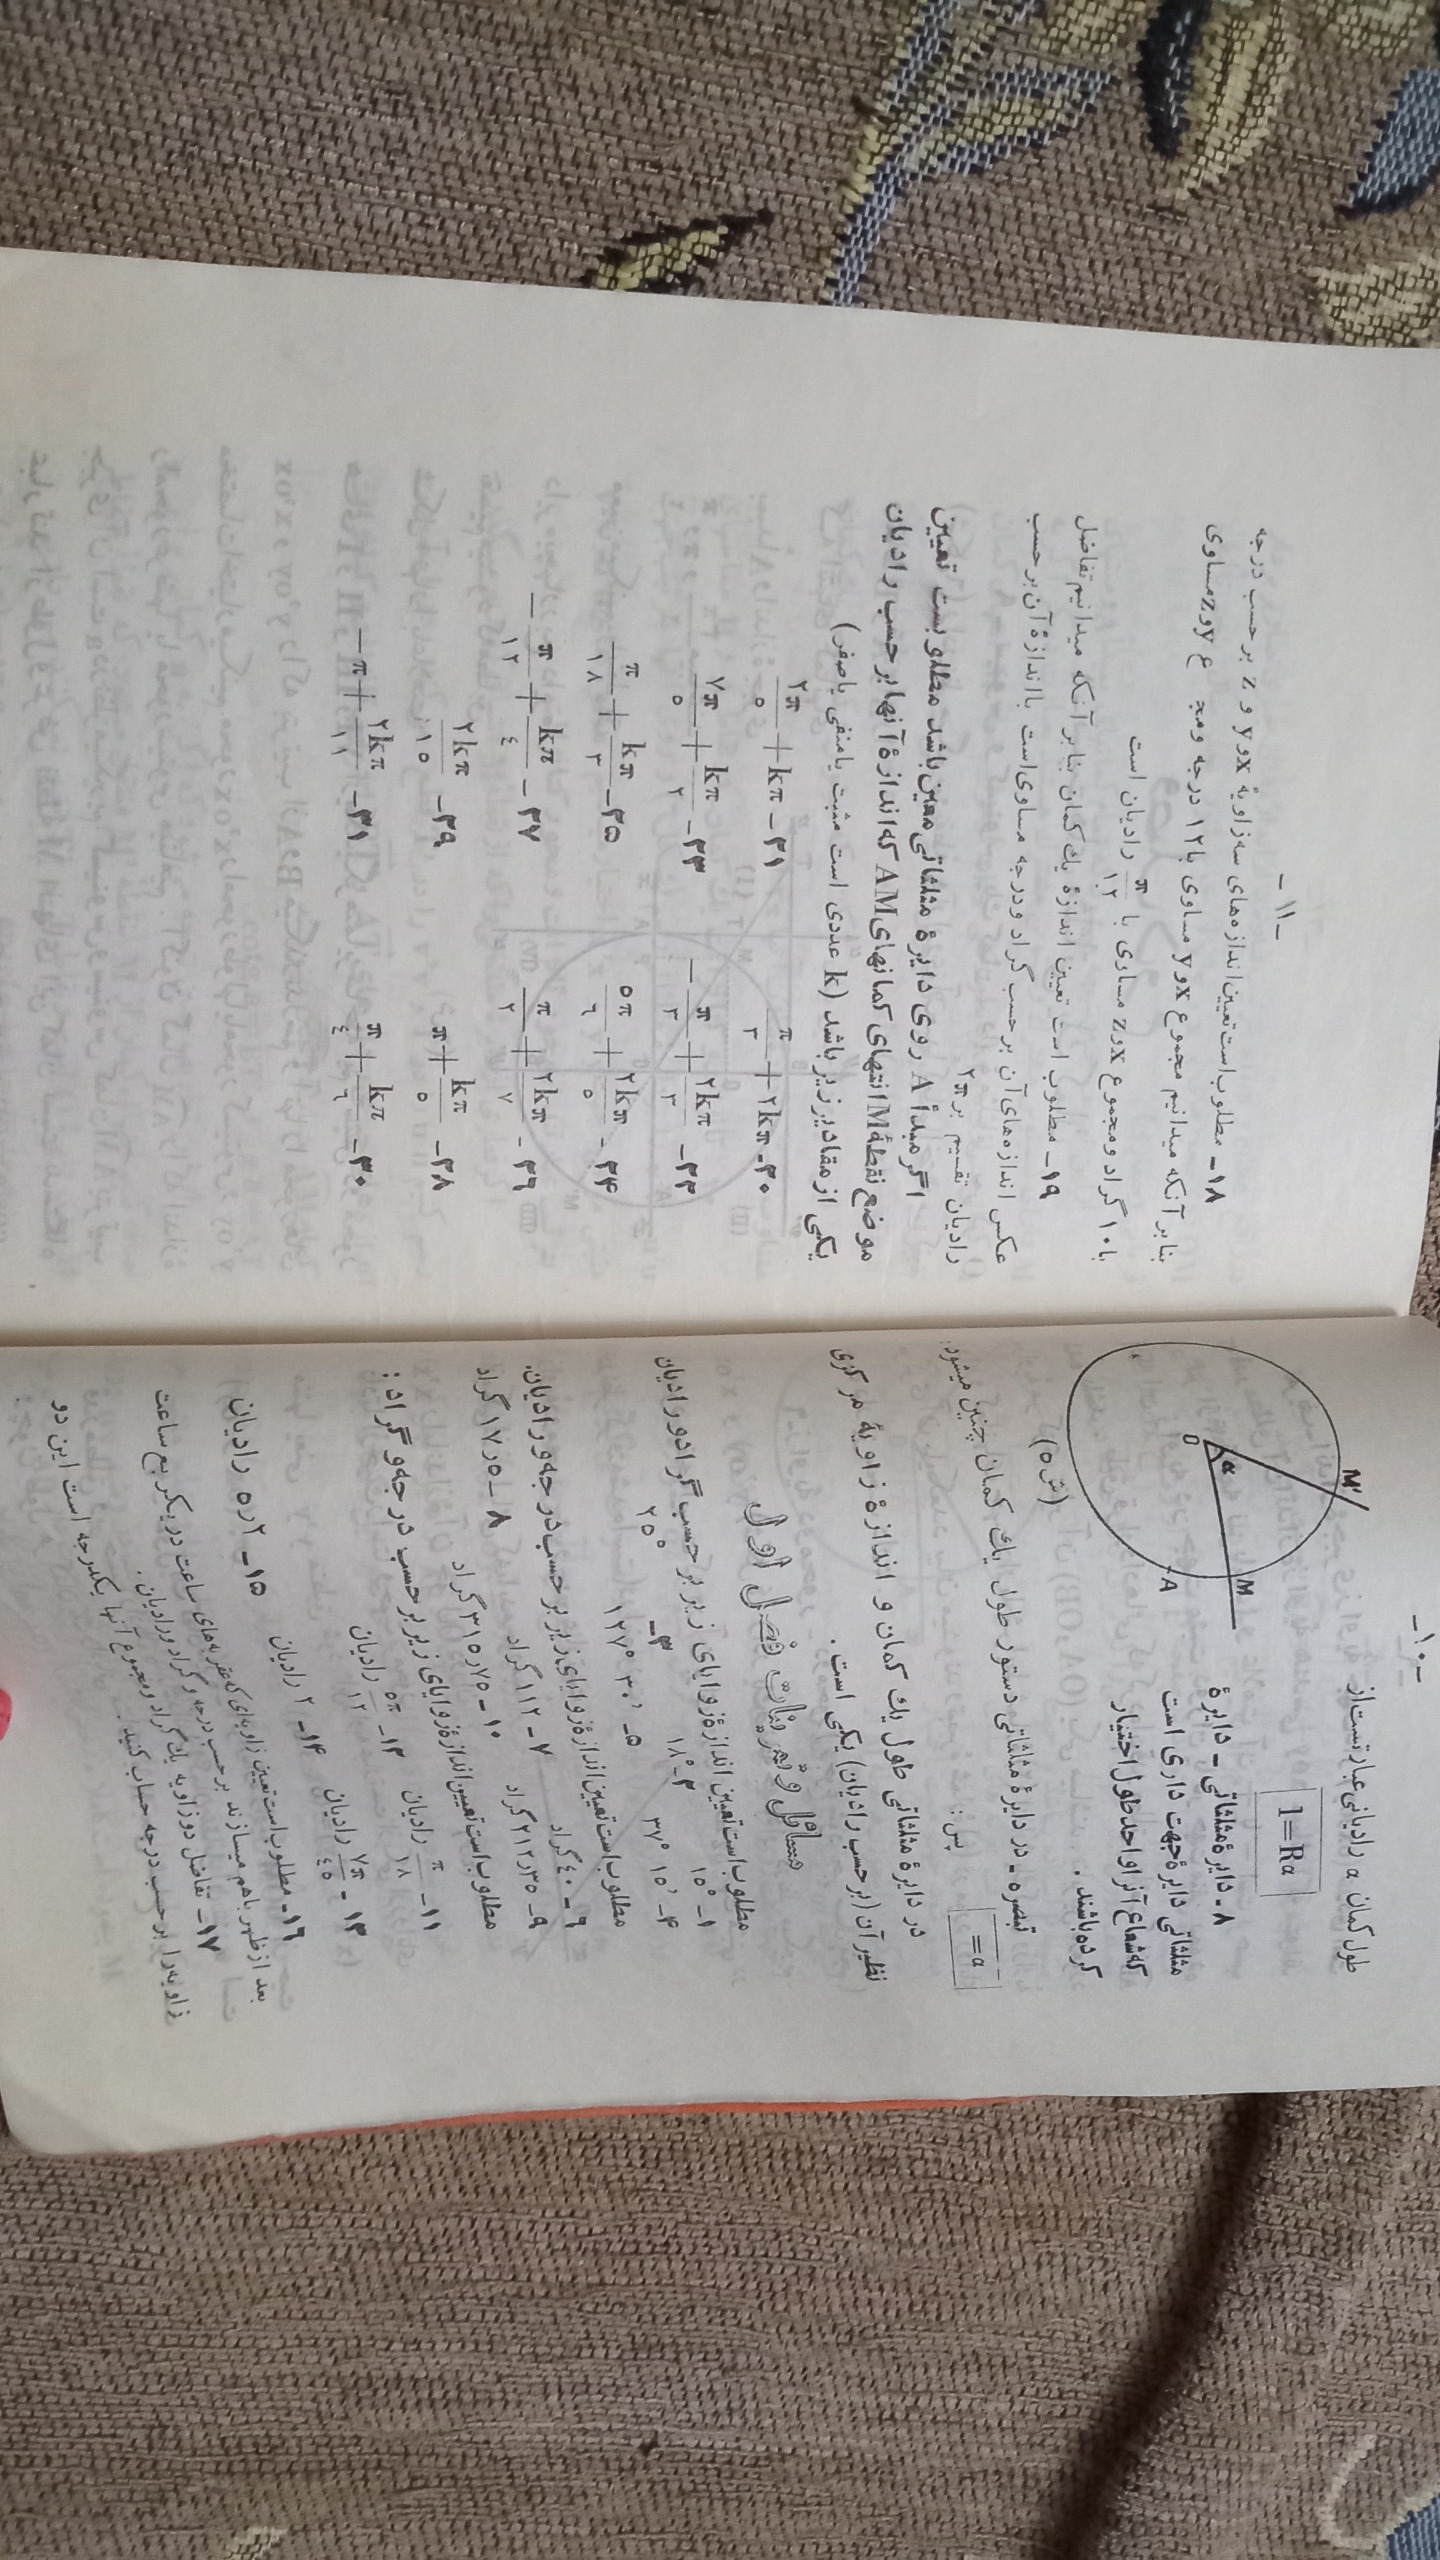 -۱۰-
طول کمان α رادیانی عبارتست از
l=Rα
۸- دایرهٔ مثلثاتی - دایرهٔ
مثلثاتی دایرهٔ جهت داری است
که شعاع آنرا واحد طول اختیار
کرده باشند.
M'
M
A
O
α
(ش ۵)
تبصره - در دایرهٔ مثلثاتی دستور طول یک کمان چنین میشود:
l=α
پس:
در دایرهٔ مثلثاتی طول یک کمان و اندازهٔ زاویهٔ مرکزی
نظیر آن (بر حسب رادیان) یکی است.
مسائل و تمرینات فصل اول
مطلوبست تعیین اندازهٔ زوایای زیر بر حسب گراد و رادیان
۱- ۱۵° ۲- ۱۸° ۳- ۲۵°
۴- ۳۷° ۱۵' ۵- ۱۲۷° ۳۰'
مطلوبست تعیین اندازهٔ زوایای زیر بر حسب درجه و رادیان.
۶- ۴۰ گراد ۷- ۱۱۲ گراد ۸- ۱۷٫۵ گراد
۹- ۲۱۲٫۳۵ گراد ۱۰- ۳۱۵٫۷۵ گراد
مطلوبست تعیین اندازهٔ زوایای زیر بر حسب درجه و گراد:
۱۱- π/۱۸ رادیان ۱۲- ۵π/۱۲ رادیان
۱۳- ۷π/۴۵ رادیان ۱۴- ۲ رادیان ۱۵- ۵٫۲ رادیان
۱۶- مطلوبست تعیین زاویه‌ای که عقربه‌های ساعت در یکربع ساعت
بعد از ظهر باهم میسازند بر حسب درجه و گراد و رادیان.
۱۷- تفاضل دو زاویه یک گراد و مجموع آنها یکدرجه است این دو
زاویه را بر حسب درجه حساب کنید.
-۱۱-
۱۸- مطلوب است تعیین اندازه‌های سه زاویهٔ x و y و z بر حسب درجه
بنابر آنکه میدانیم مجموع x و y مساوی با ۱۲ درجه و مجـ ع y و z مساوی
با ۱۰ گراد و مجموع x و z مساوی با π/۱۲ رادیان است
۱۹- مطلوب است تعیین اندازهٔ یک کمان بنابر آنکه میدانیم تفاضل
عکس اندازه‌های آن بر حسب گراد و درجه مساوی است با اندازهٔ آن بر حسب
رادیان تقسیم بر ۲π
اگر مبدأ A روی دایرهٔ مثلثاتی معین باشد مطلوبست تعیین
موضع نقطهٔ M انتهای کمانهای AM که اندازهٔ آنها بر حسب رادیان
یکی از مقادیر زیر باشد (k عددی است مثبت یا منفی یا صفر)
۲۰- π/۳ + ۲kπ ۲۱- ۲π/۵ + kπ
۲۲- -π/۳ + ۲kπ/۳ ۲۳- ۷π/۵ + kπ/۲
۲۴- ۵π/۶ + ۲kπ/۵ ۲۵- π/۱۸ + kπ/۳
۲۶- π/۲ + ۲kπ/۷ ۲۷- -π/۱۲ + kπ/۴
۲۸- π + kπ/۵ ۲۹- ۲kπ/۱۵
۳۰- π/۴ + kπ/۶ ۳۱- -π + ۲kπ/۱۱